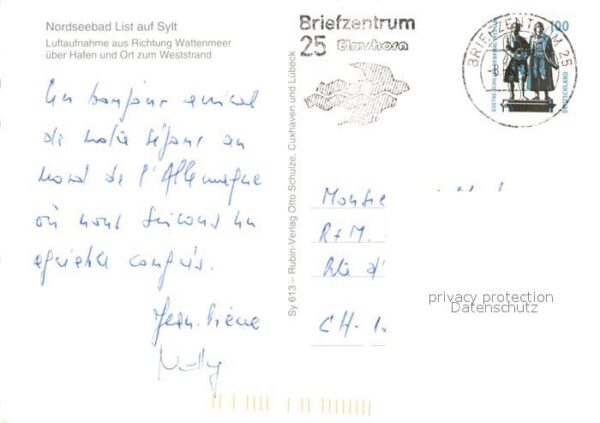 Nordseebad List auf Sylt
Luftaufnahme aus Richtung Wattenmeer
über Hafen und Ort zum Weststrand
Un bonjour amical
de notre séjour au
Nord de l'Allemagne
où nous suivons un
congrès.
Jean-Pierre
Nelly
Sy 613 – Rubin-Verlag Otto Schulze, Cuxhaven und Lübeck
Briefzentrum
25 Elmshorn
BRIEFZENTRUM 25
100
DEUTSCHLAND
Monsie
R+M.
CH-1
privacy protection
Datenschutz